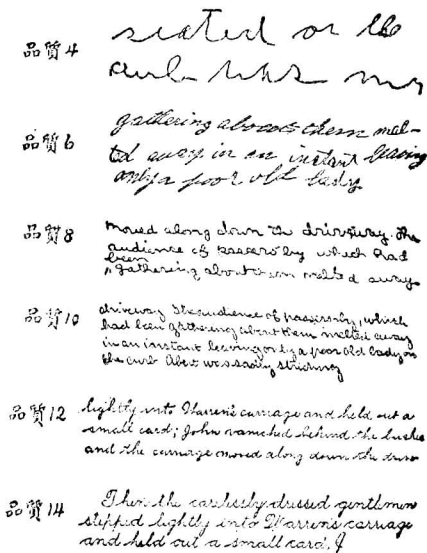 品質4 seated on the
curb
品質6 gathering about them mel-
ed away in an instant leaving
only a poor old lady
品質8 moved along down the driveway. The
audience of passers by which had
been
gathering about them melted away
品質10 driveway The audience of passersby, which
had been gathering about them melted away
in an instant leaving only a poor old lady on
the curb Albert was sadly
品質12 lightly into Warren's carriage and held out a
small card; John vanished behind the bushes
and the carriage moved along down the drive
品質14 Then the carelessly dressed gentleman
stepped lightly into Warren's carriage
and held out a small card, J